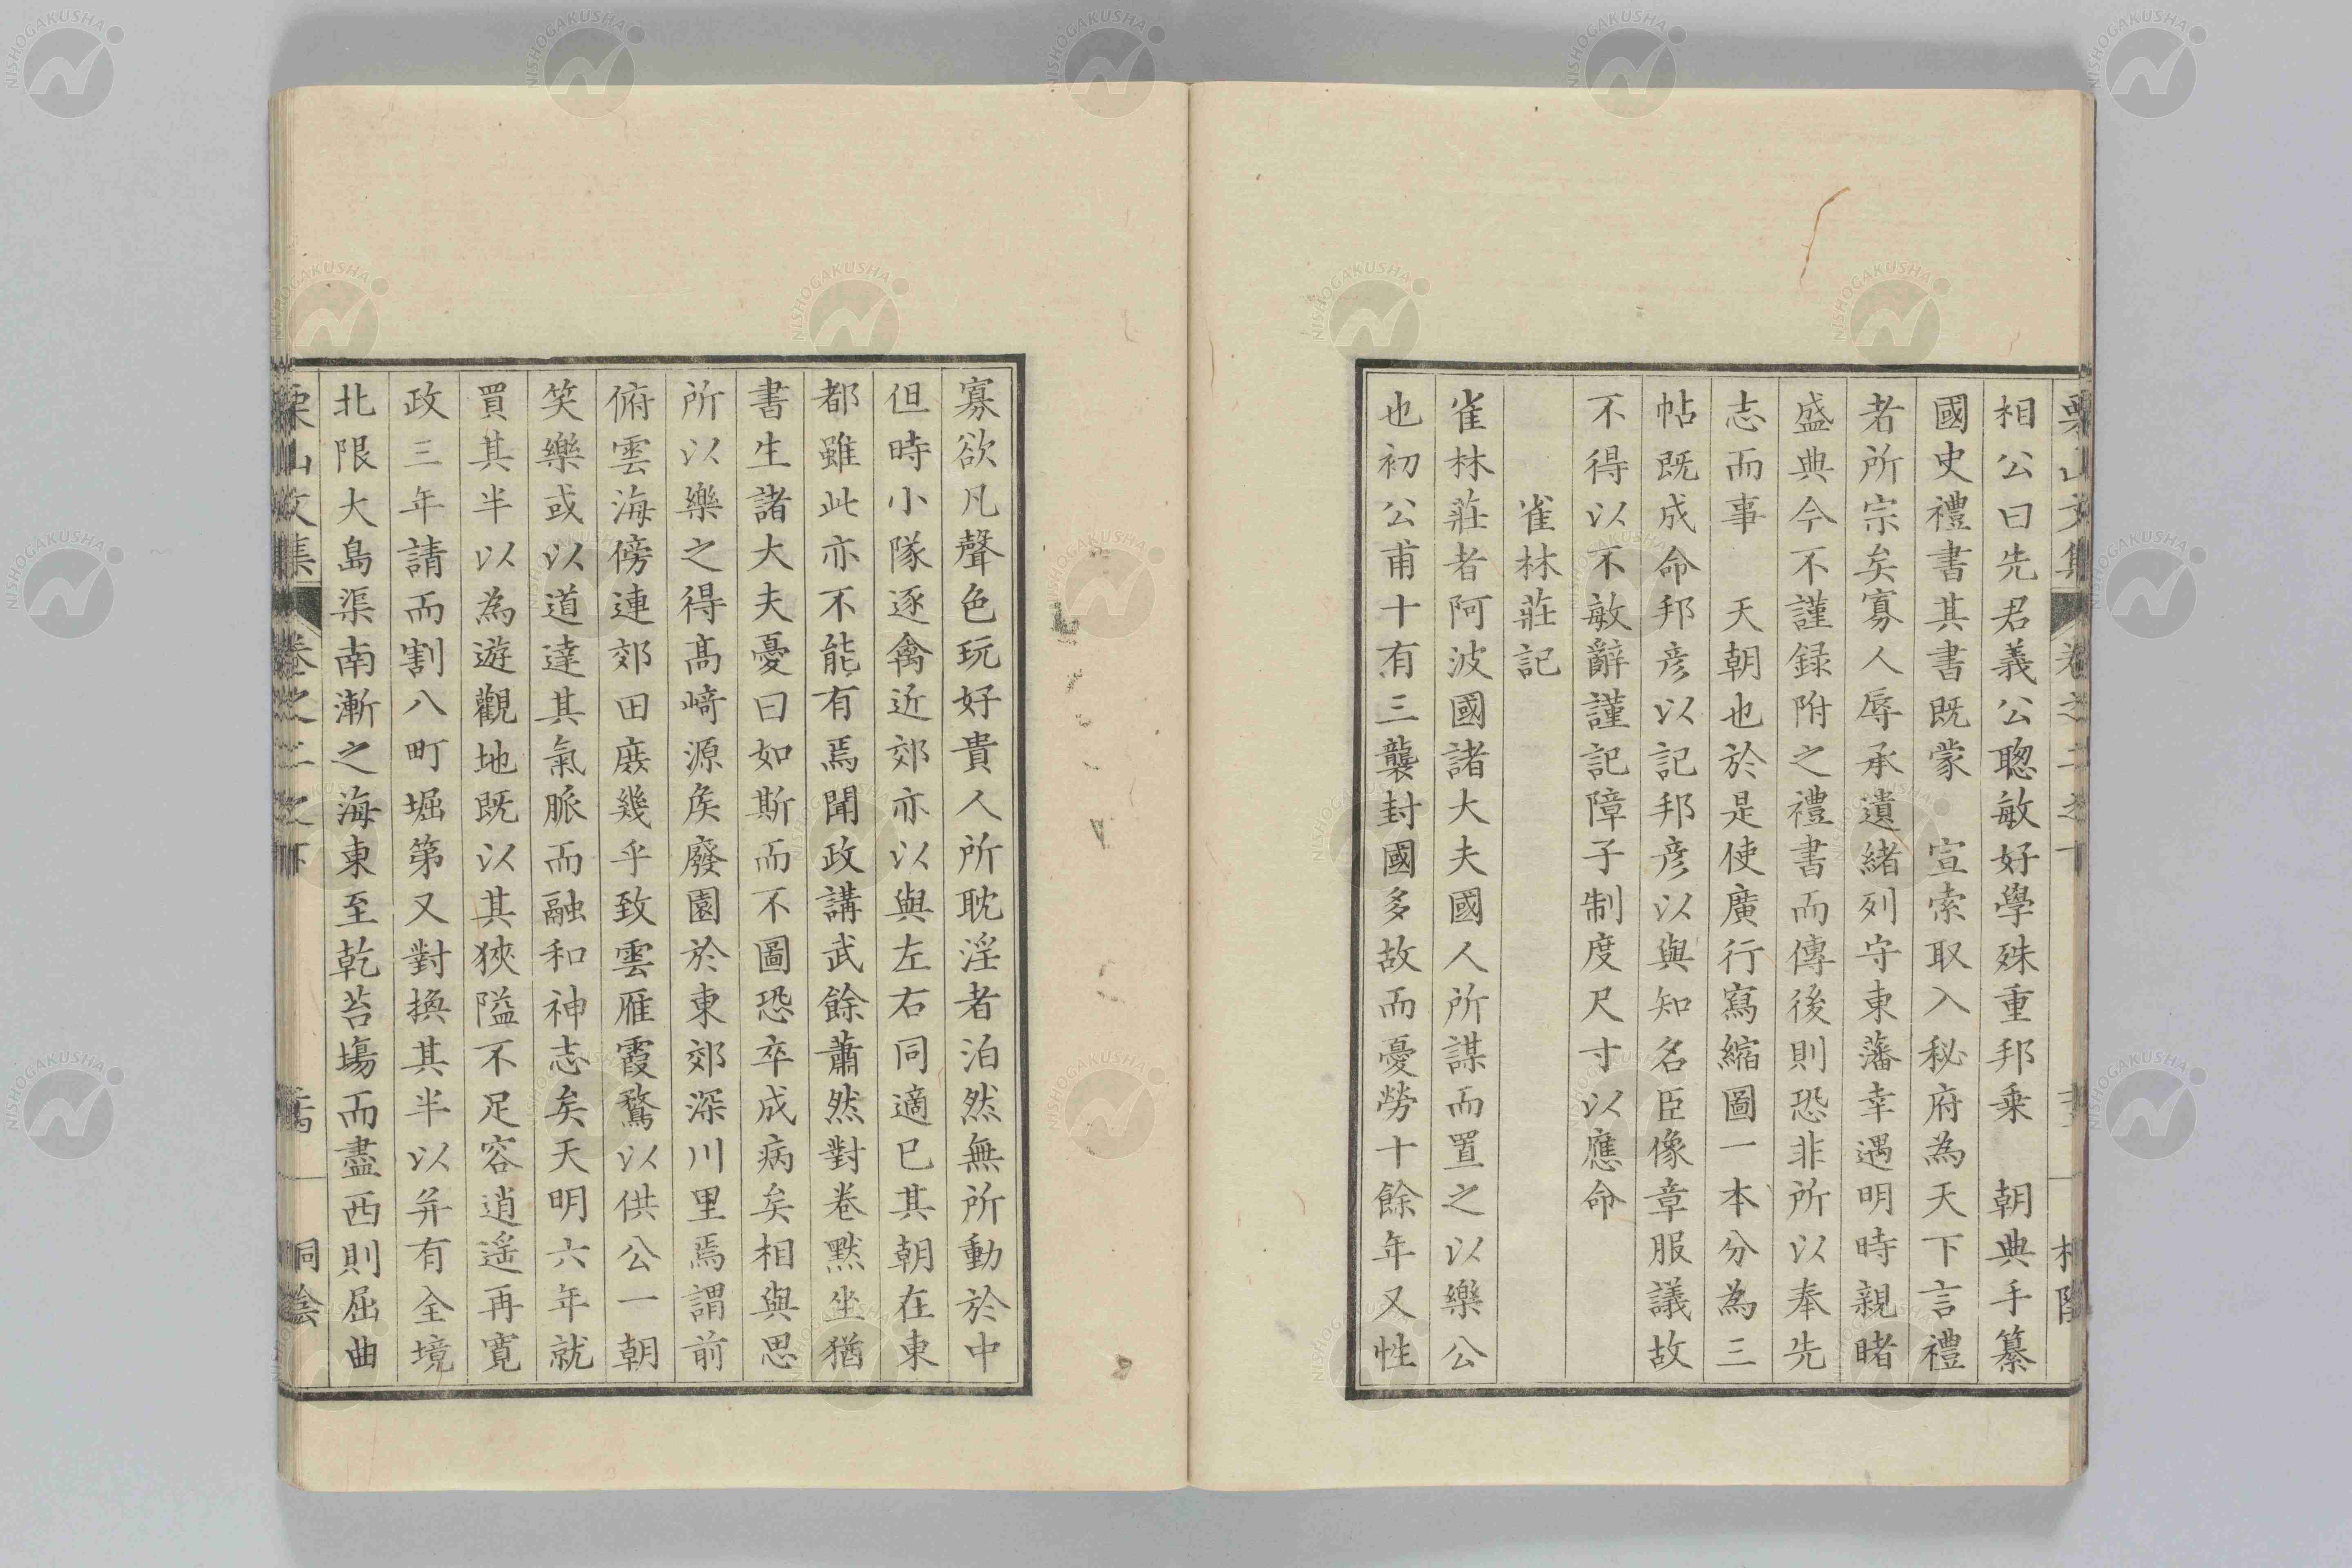 相公曰先君義公聰敏好學殊重邦乗　朝典手纂
國史禮書其書既蒙　宣索取入秘府為天下言禮
者所宗矣寡人辱承遺緒列守東藩幸遇明時親睹
盛典今不謹録附之禮書而傳後則恐非所以奉先
志而事　天朝也於是使廣行寫縮圖一本分為三
帖既成命邦彦以記邦彦以與知名臣像章服議故
不得以不敏辭謹記障子制度尺寸以應命
雀林莊記
雀林莊者阿波國諸大夫國人所謀而置之以樂公
也初公甫十有三襲封國多故而憂勞十餘年又性
寡欲凡聲色玩好貴人所耽淫者泊然無所動於中
但時小隊逐禽近郊亦以與左右同適已其朝在東
都雖此亦不能有焉聞政講武餘蕭然對卷黙坐猶
書生諸大夫憂曰如斯而不圖恐卒成病矣相與思
所以樂之得髙﨑源矦廢園於東郊深川里焉謂前
俯雲海傍連郊田庶幾乎致雲雁霞鶩以供公一朝
笑樂或以道達其氣脈而融和神志矣天明六年就
買其半以為遊觀地既以其狹隘不足容逍遥再寛
政三年請而割八町堀第又對換其半以并有全境
北限大島渠南漸之海東至乾苔塲而盡西則屈曲
栗山文集　卷之二之下